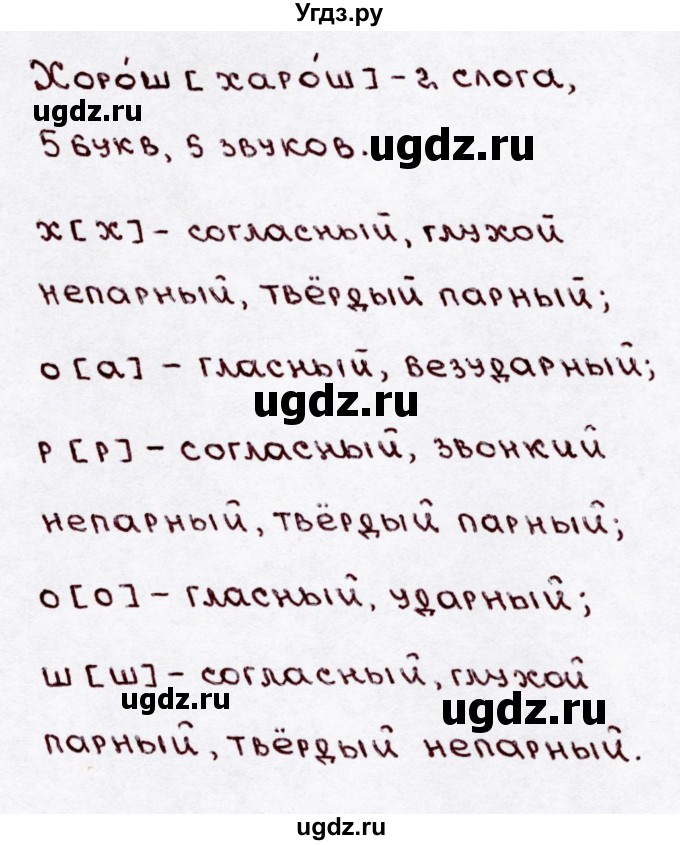 Угдз.ру
Хоро́ш [харо́ш] - 2 слога,
ugdz.ru
5 букв, 5 звуков.
ugdz.ru
х [х] - согласный, глухой
непарный, твёрдый парный;
о [а] - гласный, безударный;
ugdz.ru
р [р] - согласный, звонкий
непарный, твёрдый парный;
о [о] - гласный, ударный;
ш [ш] - согласный, глухой
ugdz.ru
ugdz.ru
парный, твёрдый непарный.
ugdz.ru